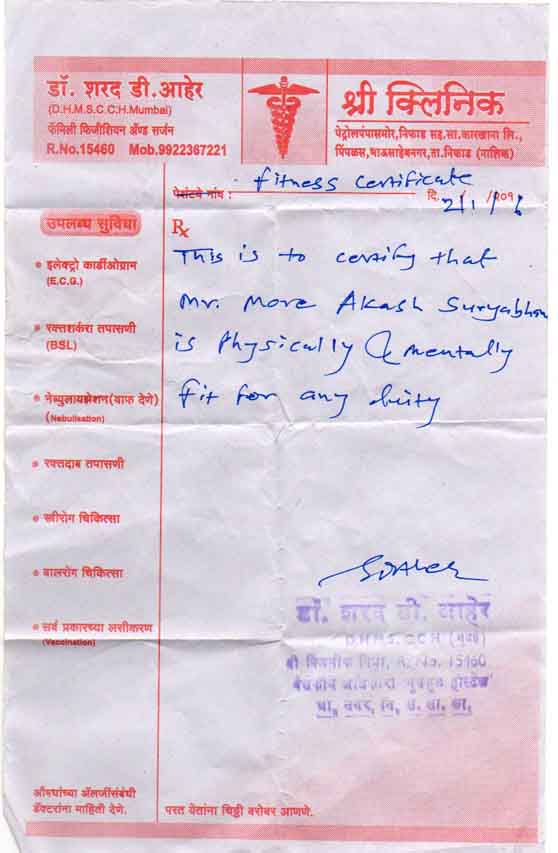 डॉ. शरद डी. आहेर
(D.H.M.S.C.C.H.Mumbai)
फॅमिली फिजीशियन अ‍ॅण्ड सर्जन
R.No.15460 Mob.9922367221
श्री क्लिनिक
पेट्रोलपंपासमोर, निफाड सह.सा.कारखाना लि.,
पिंपळस, भाऊसाहेबनगर, ता.निफाड (नाशिक)
fitness certificate
पेशंटचे नांव :
दि. 2/1/१६
उपलब्ध सुविधा
• इलेक्ट्रो कार्डीओग्राम
(E.C.G.)
• रक्तशर्करा तपासणी
(BSL)
• नेब्युलायझेशन(वाफ देणे)
(Nebulisation)
• रक्तदाब तपासणी
• स्त्रीरोग चिकित्सा
• बालरोग चिकित्सा
• सर्व प्रकारच्या लसीकरण
(Vaccination)
This is to certify that
Mr. More Akash Suryabhan
is Physically & mentally
fit for any duty
डॉ. शरद डी. आहेर
D.H.M.S. CCH (मुंबई)
R. No. 15460
औषधांच्या अ‍ॅलर्जीसंबंधी
डॅक्टरांना माहिती देणे.
परत येतांना चिठ्ठी बरोबर आणणे.